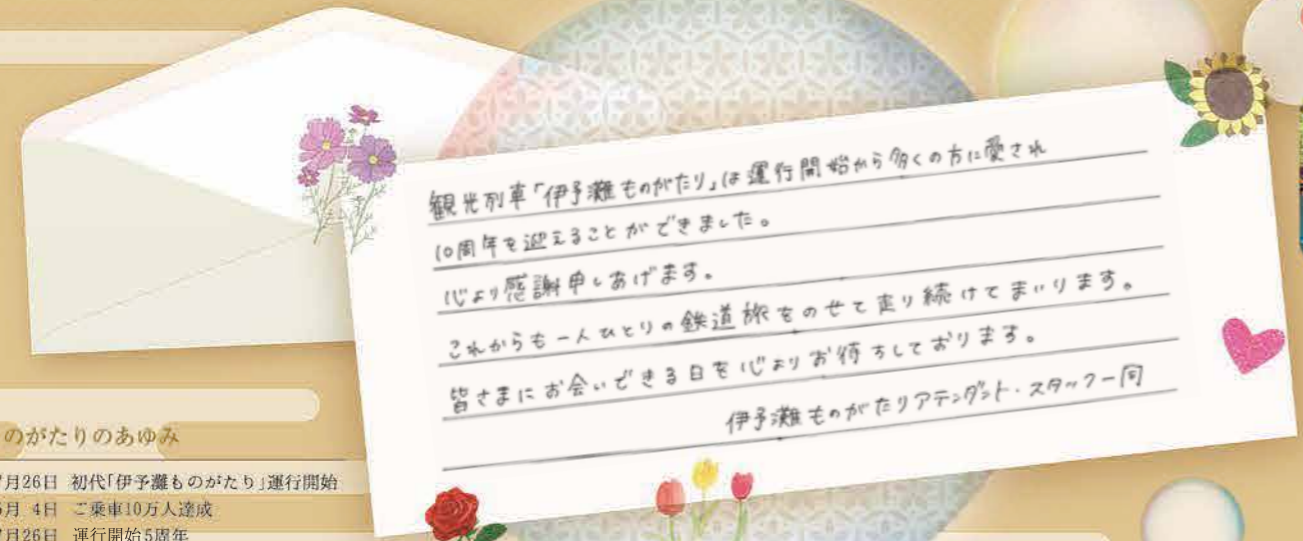 観光列車「伊予灘ものがたり」は運行開始から多くの方に愛され
10周年を迎えることができました。
心より感謝申しあげます。
これからも一人ひとりの鉄道旅をのせて走り続けてまいります。
皆さまにお会いできる日を心よりお待ちしております。
伊予灘ものがたりアテンダント・スタッフ一同
のがたりのあゆみ
7月26日 初代「伊予灘ものがたり」運行開始
月 4日 ご乗車10万人達成
7月26日 運行開始5周年